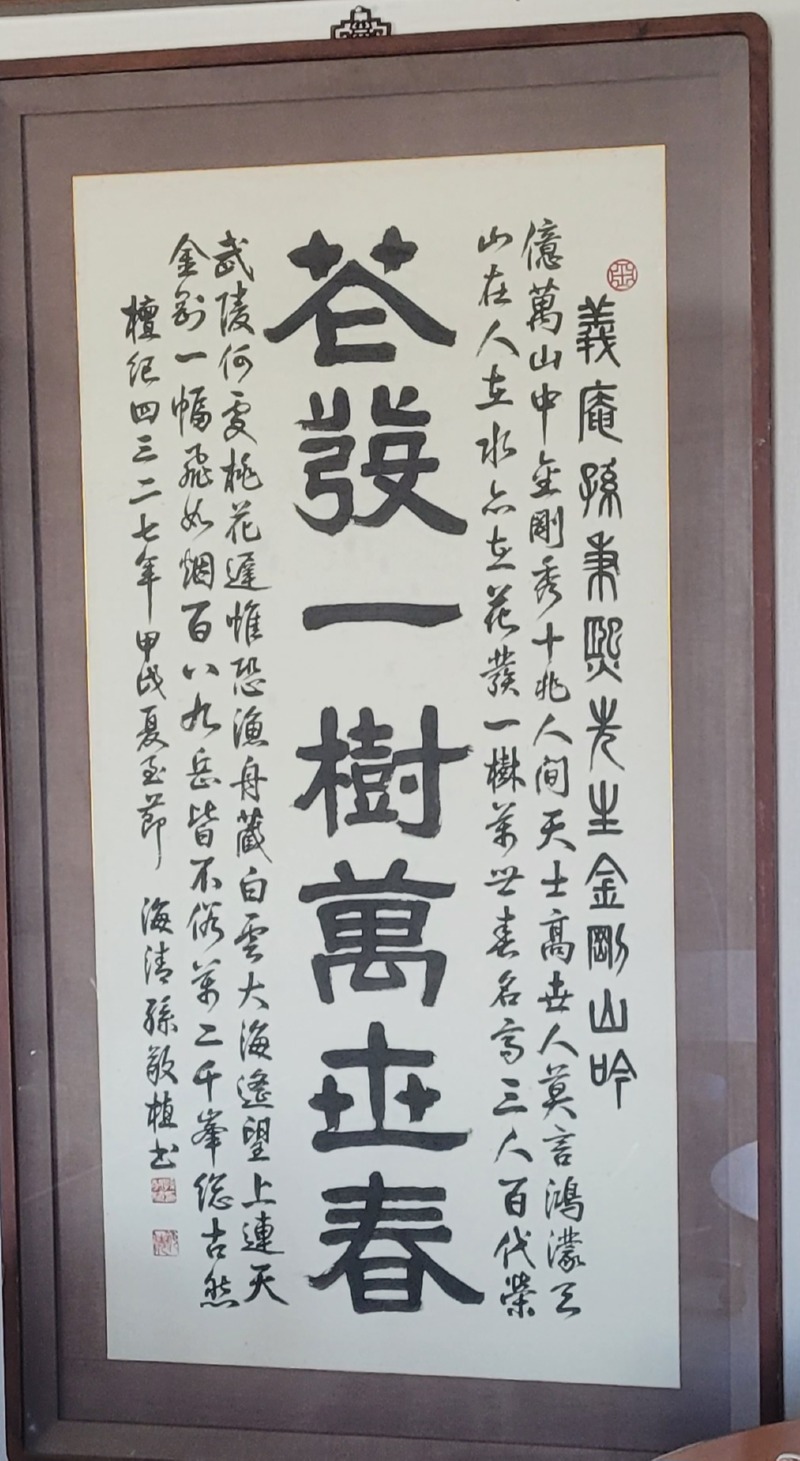 義庵孫秉熙先生金剛山吟
億萬山中金剛秀十兆人间天士高世人莫言鴻濛天
山在人在水亦在花發一樹萬世春名高三人百代榮
花發一樹萬世春
武陵何處桃花遲惟恐漁舟藏白雲大海遙望上連天
金剛一幅飛如烟百八九岳皆不俗萬二千峯總古然
檀紀四三二七年甲戌夏至節 海清孫敬植书